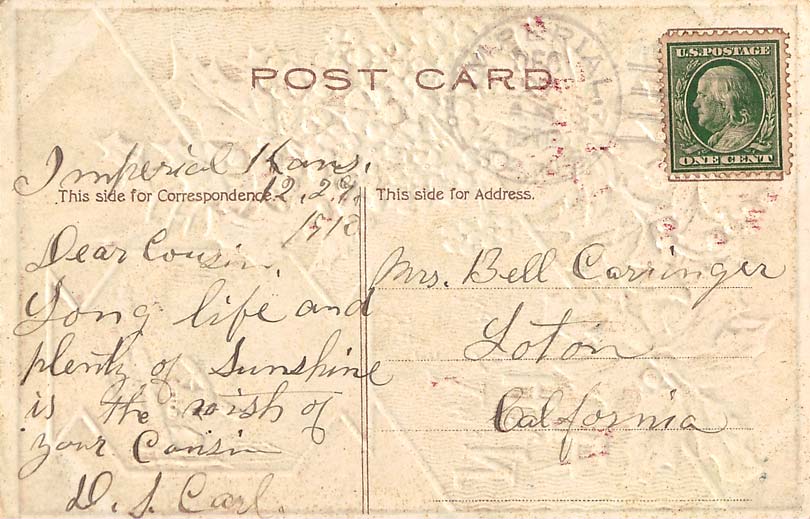 POST CARD
IMPERIAL
DEC
U.S. POSTAGE
ONE CENT
Imperial Kans.
This side for Correspondence.
12.29.
1910
Dear Cousin,
Long life and
plenty of Sunshine
is the wish of
your Cousin
D. S. Carl.
This side for Address.
Mrs. Bell Carringer
Loton
California